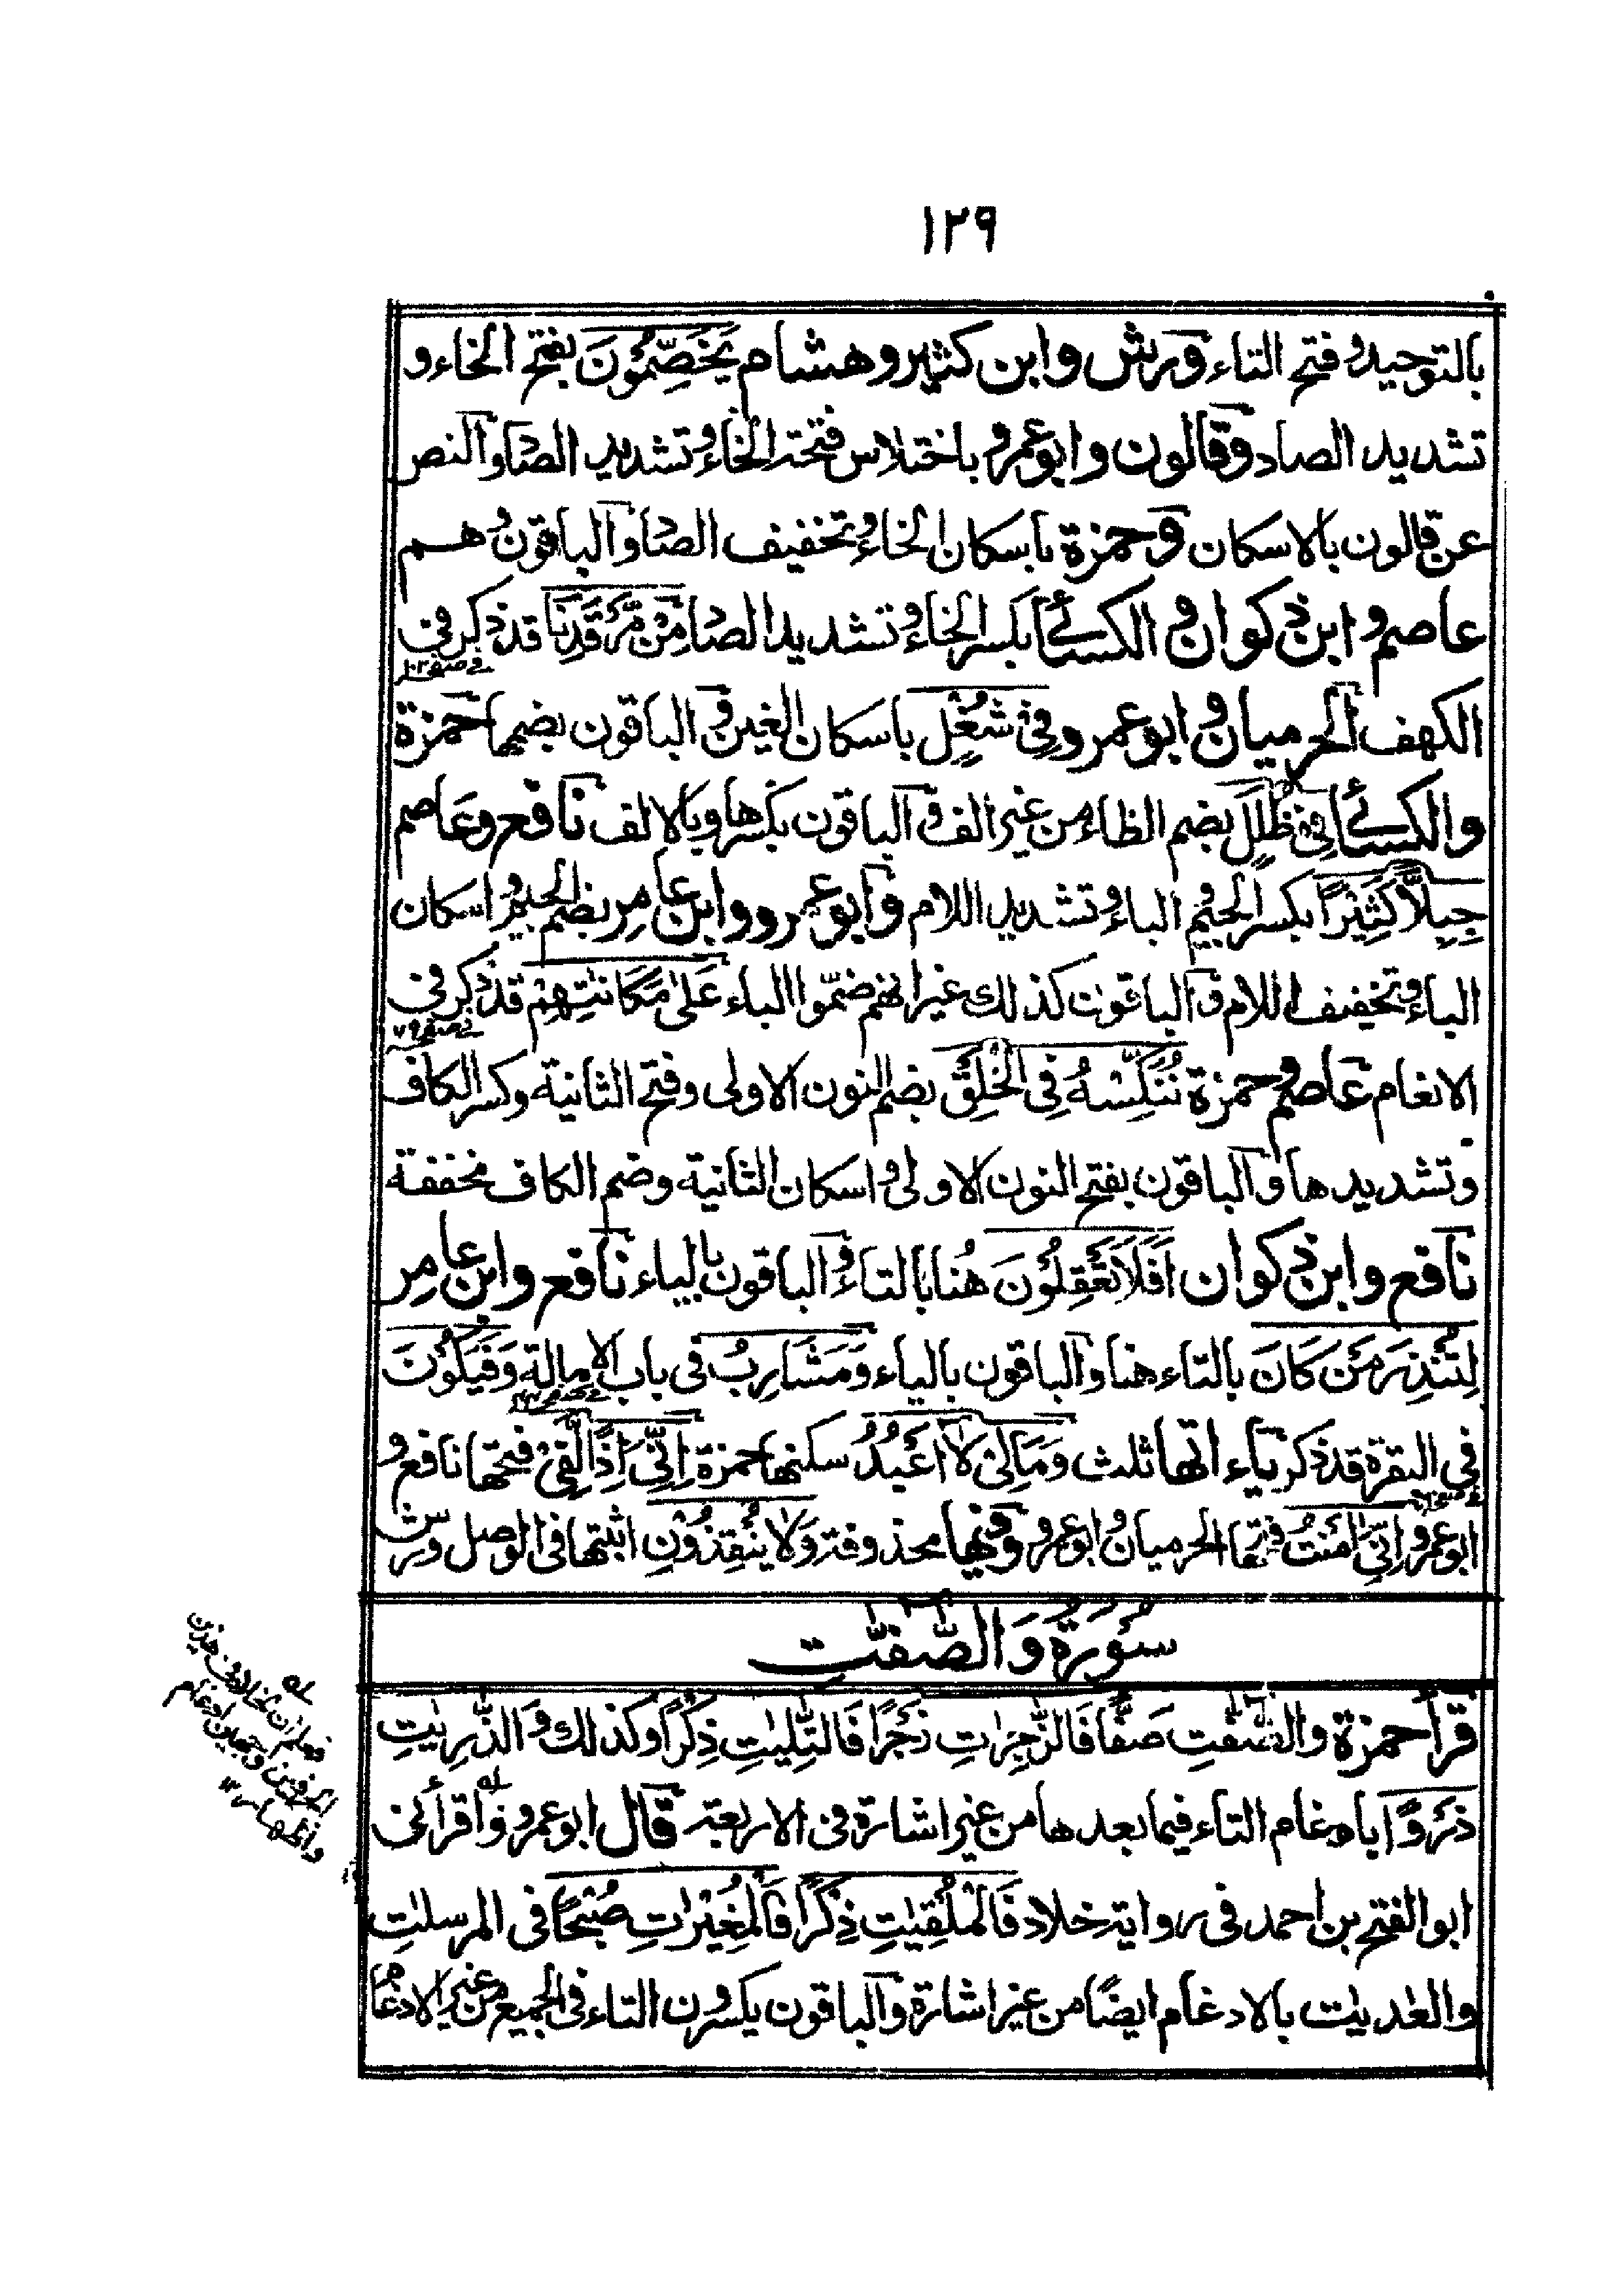 ١٢٩
بالتوحيد وفتح التاء ورش وابن كثير وهشام يَخَصِّمُوْنَ بفتح الخاء و
تشديد الصاد وقالون وابوعمرو باختلاس فتحة الخاء وتشديد الصاد والنص
عن قالون بالاسكان وحمزة باسكان الخاء وتخفيف الصاد والباقون وهم
عاصم وابن ذكوان والكسائى بكسر الخاء وتشديد الصاد مِنْ مَّرْقَدِنَا قد ذكر فى
الكهف الحرميان وابوعمرو فِىْ شُغُلٍ باسكان الغين والباقون بضمها حمزة
والكسائى فى ظُلَلٍ بضم الظاء من غير الف والباقون بكسرها وبالالف نافع وعاصم
جِبِلًّا كَثِيْرًا بكسر الجيم والباء وتشديد اللام وابوعمرو وابن عامر بضم الجيم واسكان
الباء وتخفيف اللام والباقون كذلك غير انهم ضمّوا الباء عَلٰى مَكَانَتِهِمْ قد ذكر فى
الانعام عاصم وحمزة نُنَكِّسْهُ فِى الْخَلْقِ بضم النون الاولى وفتح الثانية وكسر الكاف
وتشديدها والباقون بفتح النون الاولى واسكان الثانية وضم الكاف مخففة
نافع وابن ذكوان اَفَلَا تَعْقِلُوْنَ هنا بالتاء والباقون بالياء نافع وابن عامر
لِتُنْذِرَ مَنْ كَانَ بالتاء هنا والباقون بالياء وَمَشَارِبُ فى باب الامالة وَفَيَكُوْنَ
فى البقرة قد ذكر ياء اتها ثلث وَمَالِىَ لَا اَعْبُدُ سكنها حمزة اِنِّىْ اِذًا لَّفِىْ فتحها نافع و
ابوعمرو اِنِّىْ اٰمَنْتُ فتحها الحرميان وابوعمرو وفيها محذوفة وَلَا يُنْقِذُوْنِ اثبتها فى الوصل ورش
سُوْرَةُ وَالصّٰفّٰت
قرأ حمزة والصّٰفّٰتِ صَفًّا فَالزّٰجِرٰتِ زَجْرًا فَالتّٰلِيٰتِ ذِكْرًا وكذلك وَالذّٰرِيٰتِ
ذَرْوًا بادغام التاء فيما بعدها من غير اشارة فى الاربعة قال ابوعمرو واقرأنى
ابوالفتح بن احمد فى رواية خلاد فَالْمُلْقِيٰتِ ذِكْرًا فَالْمُغِيْرٰتِ صُبْحًا فى المرسلٰت
والعٰديٰت بالادغام ايضًا من غير اشارة والباقون يكسرون التاء فى الجميع من غير الادغام
فعلم ان لخلاد فى هذين
الحرفين وجهين ادغام
واظهار ١٢